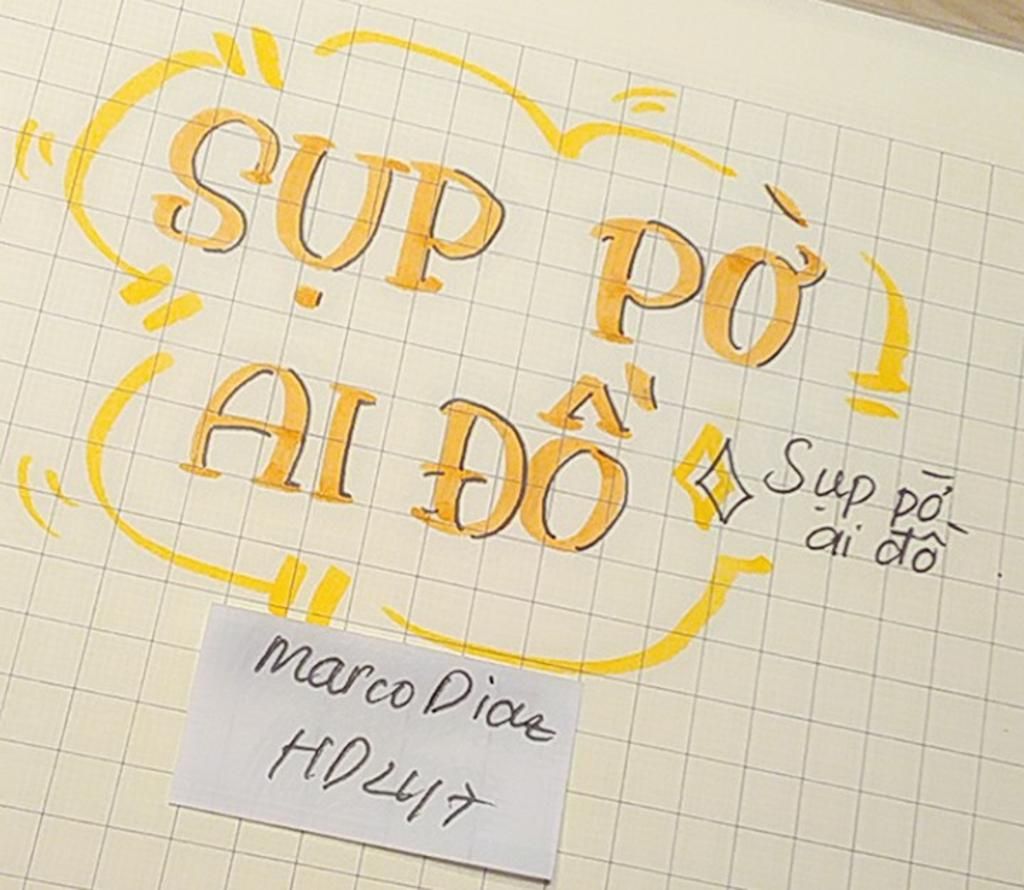 SỤP PỜ
AI ĐỒ
Sụp pờ
ai đồ
Marco Diaz
HD247